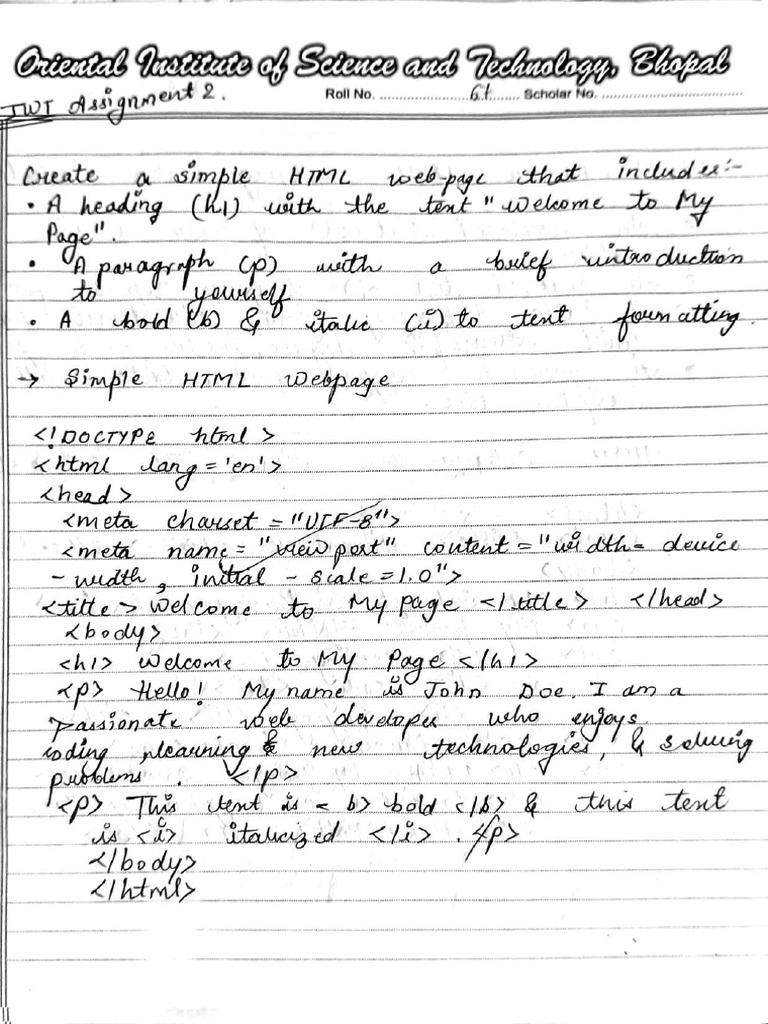 Oriental Institute of Science and Technology, Bhopal
IWT Assignment 2. Roll No. 61 Scholar No.
Create a simple HTML web-page that includes:-
• A heading (h1) with the text "Welcome to My
Page".
• A paragraph (p) with a brief introduction
to yourself
• A bold (b) & italic (i) to text formatting.
→ Simple HTML Webpage
<!DOCTYPE html>
<html lang='en'>
<head>
<meta charset="UTF-8">
<meta name="viewport" content="width=device
-width, initial-scale=1.0">
<title>Welcome to My page </title> </head>
<body>
<h1> Welcome to My Page </h1>
<p> Hello! My name is John Doe. I am a
passionate web developer who enjoys
coding, learning new technologies, & solving
problems. </p>
<p> This text is <b> bold </b> & this text
is <i> italicized </i>. </p>
</body>
</html>